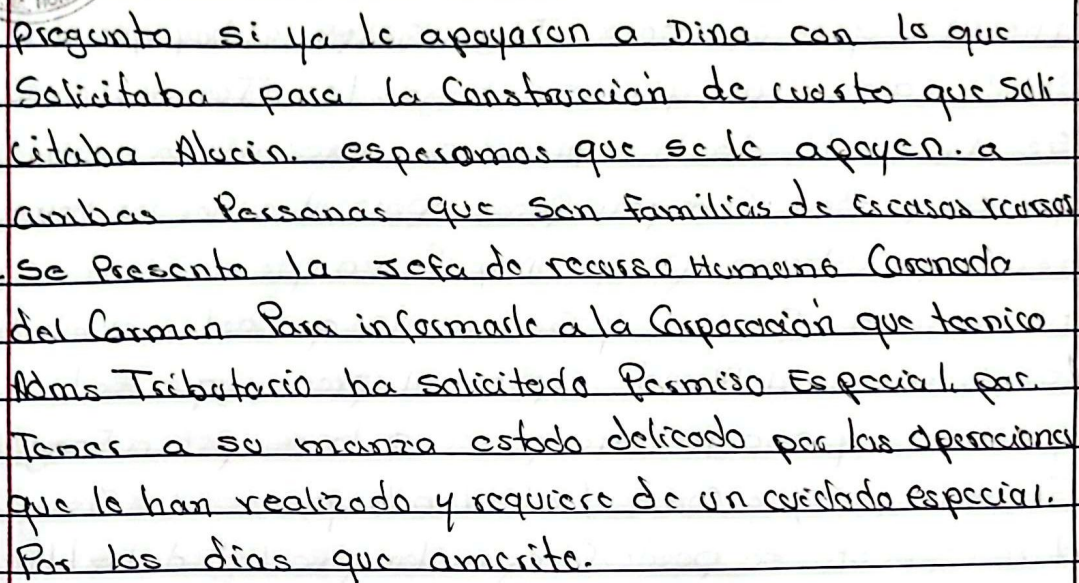 pregunto si ya le apoyaron a Dina con lo que
Solicitaba para la Construcción de cuarto que Soli
citaba Alucin. esperamos que se le apoyen. a
ambas Personas que son familias de escasos recursos
. Se Presento la Jefa de recurso Humano Coronada
del Carmen Para informarle a la Corporación que tecnico
Adms Tributario ha Solicitado Permiso Especial, por.
Tener a su mamza estado delicado por las operaciones
que le han realizado y requiere de un cuidado especial.
Por los dias que amerite.